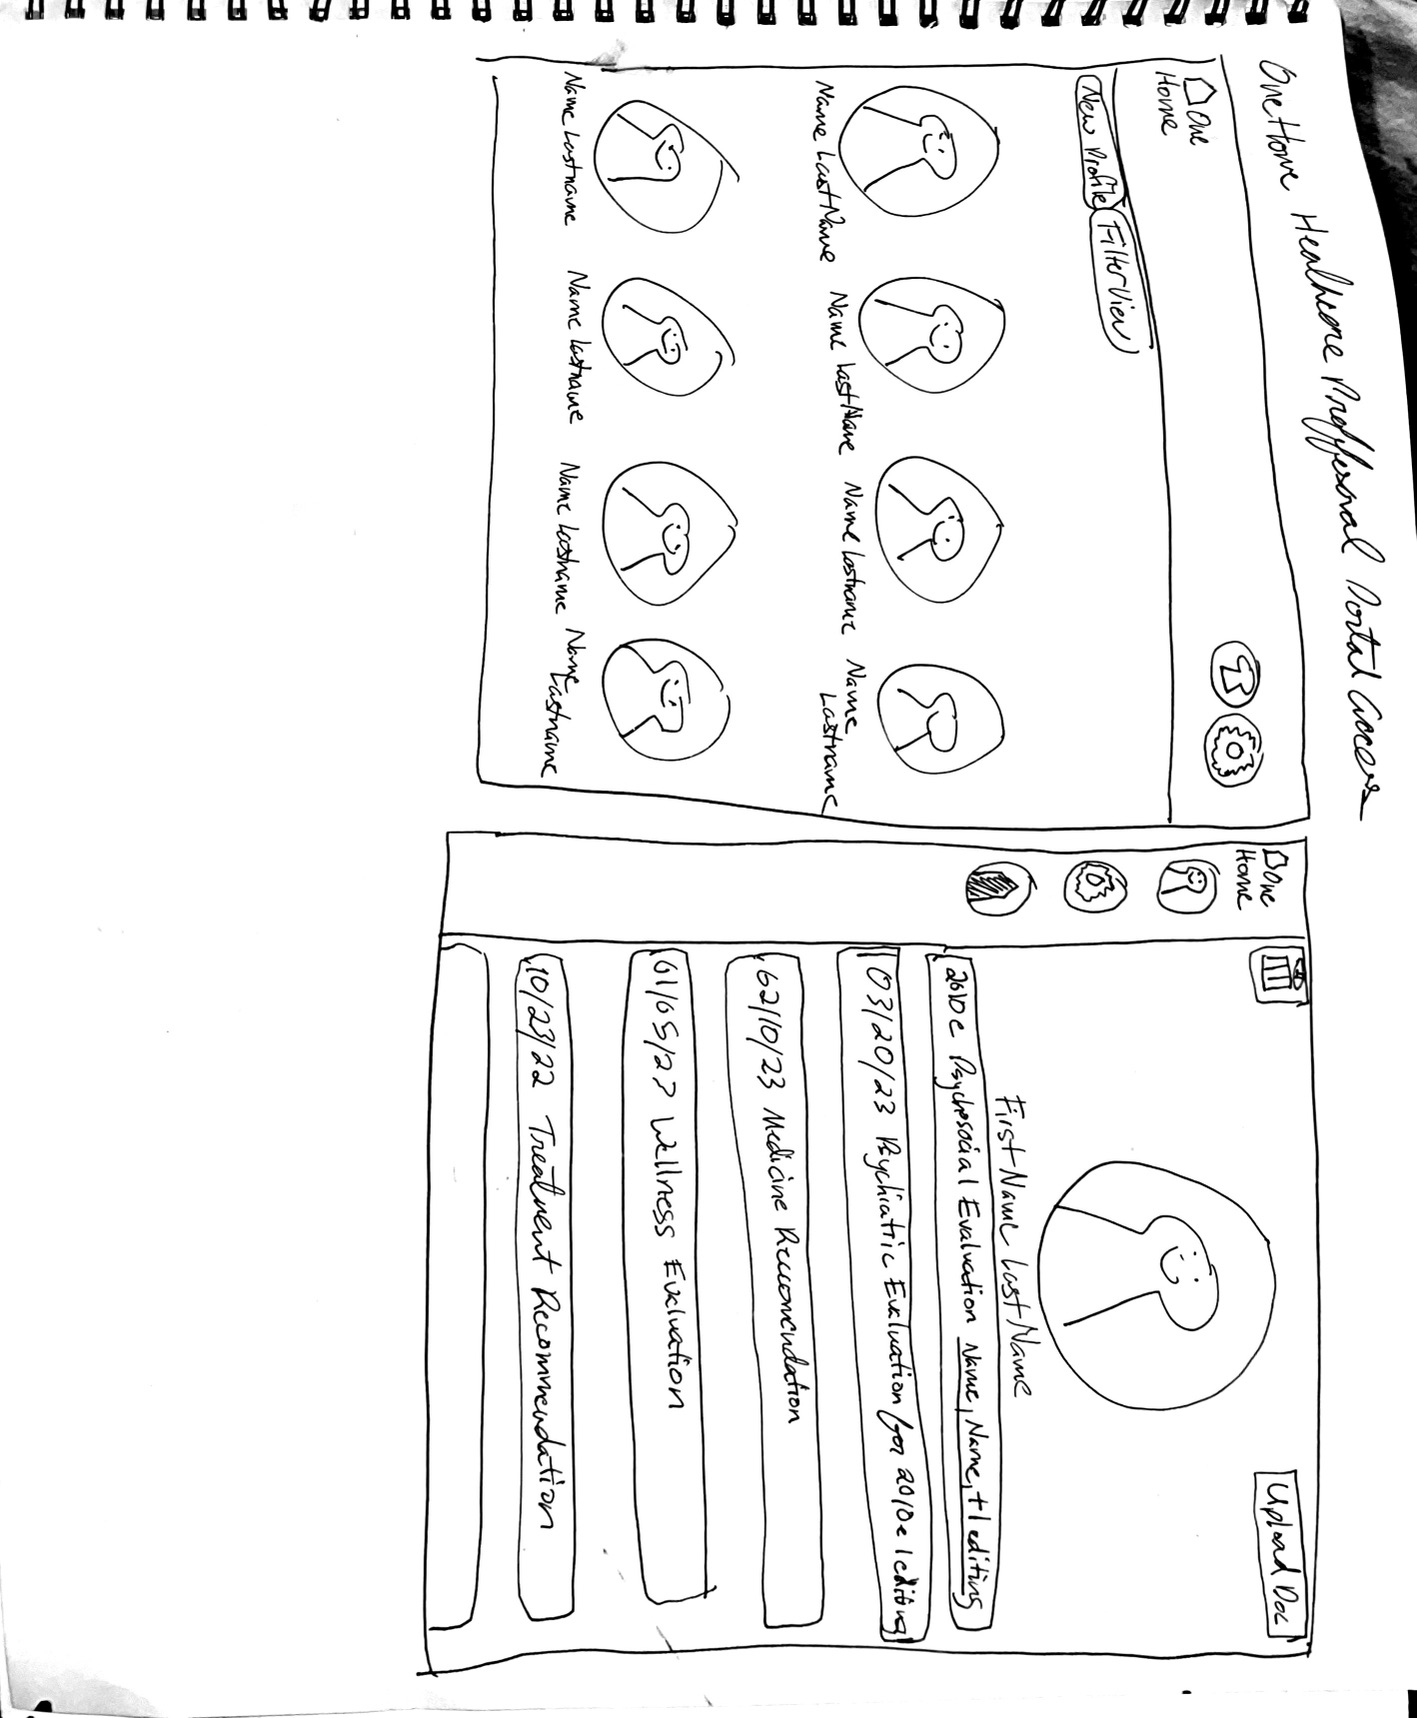 One Home Healthcare Proffesional Portal Access
One
Home
New Profile
Filter View
Name LastName
Name LastName
Name Lastname
Name
Lastname
Name Lastname
Name Lastname
Name Lastname
Name
Lastname
One
Home
Upload Doc
First Name Last Name
2010e Psychosocial Evaluation Name, Name, +1 editing
03/20/23 Psychiatric Evaluation for 2010e 1 editing
02/10/23 Medicine Recommendation
01/05/23 Wellness Evaluation
10/23/22 Treatment Recommendation